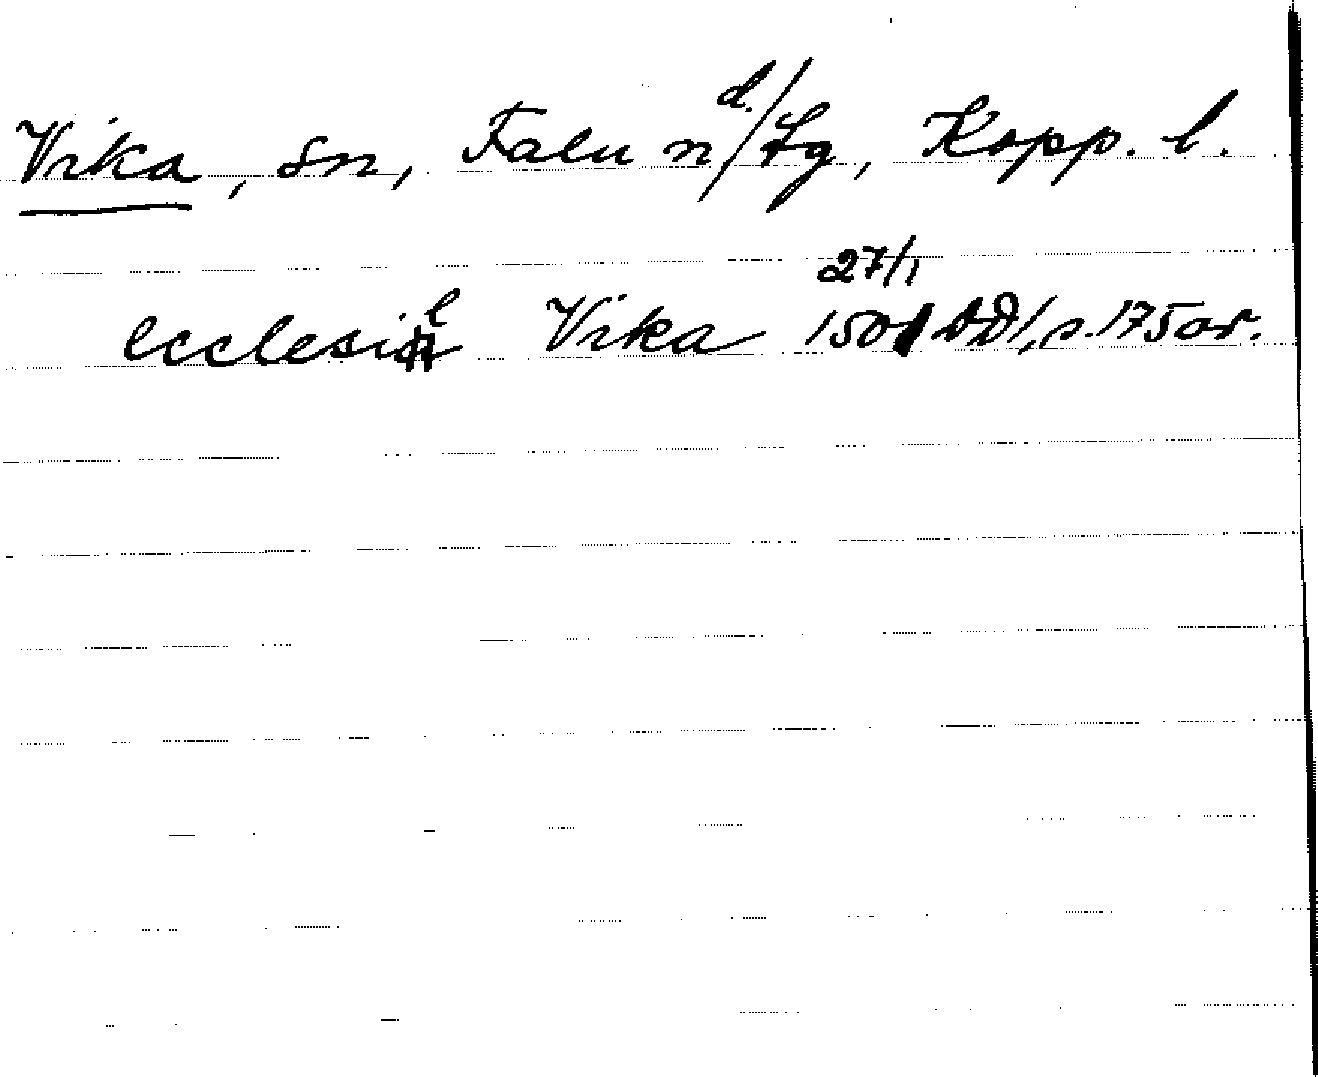 Vika, sn, Falu n.d./fg, Kopp. l.
27/1
ecclesie Vika 1501 DD 1, s. 175 or.